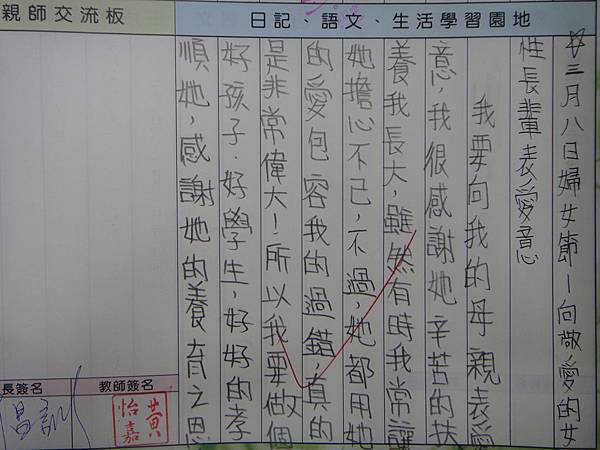 日記、語文、生活學習園地
☆三月八日婦女節—向敬愛的女
性長輩表愛意
我要向我的母親表愛
意,我很感謝她辛苦的扶
養我長大,雖然有時我常讓
她擔心不已,不過,她都用她
的愛包容我的過錯,真的
是非常偉大!所以我要做個
好孩子.好學生,好好的孝
順她,感謝她的養育之恩
親師交流板
教師簽名
黃怡嘉
長簽名